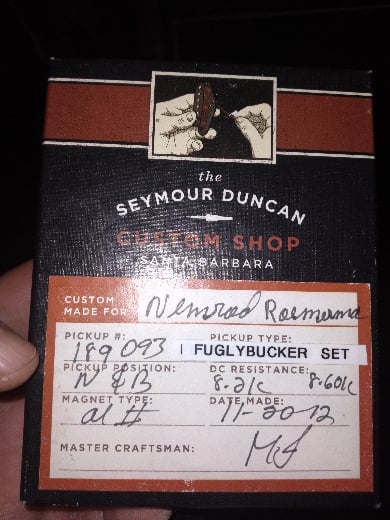 the
SEYMOUR DUNCAN
CUSTOM SHOP
SANTA BARBARA
CUSTOM
MADE FOR Nemrod
PICKUP #: PICKUP TYPE:
189 093 FUGLYBUCKER SET
PICKUP POSITION: DC RESISTANCE:
N & B 8.21K 8.60K
MAGNET TYPE: DATE MADE:
al II 11-2012
MASTER CRAFTSMAN: MJ